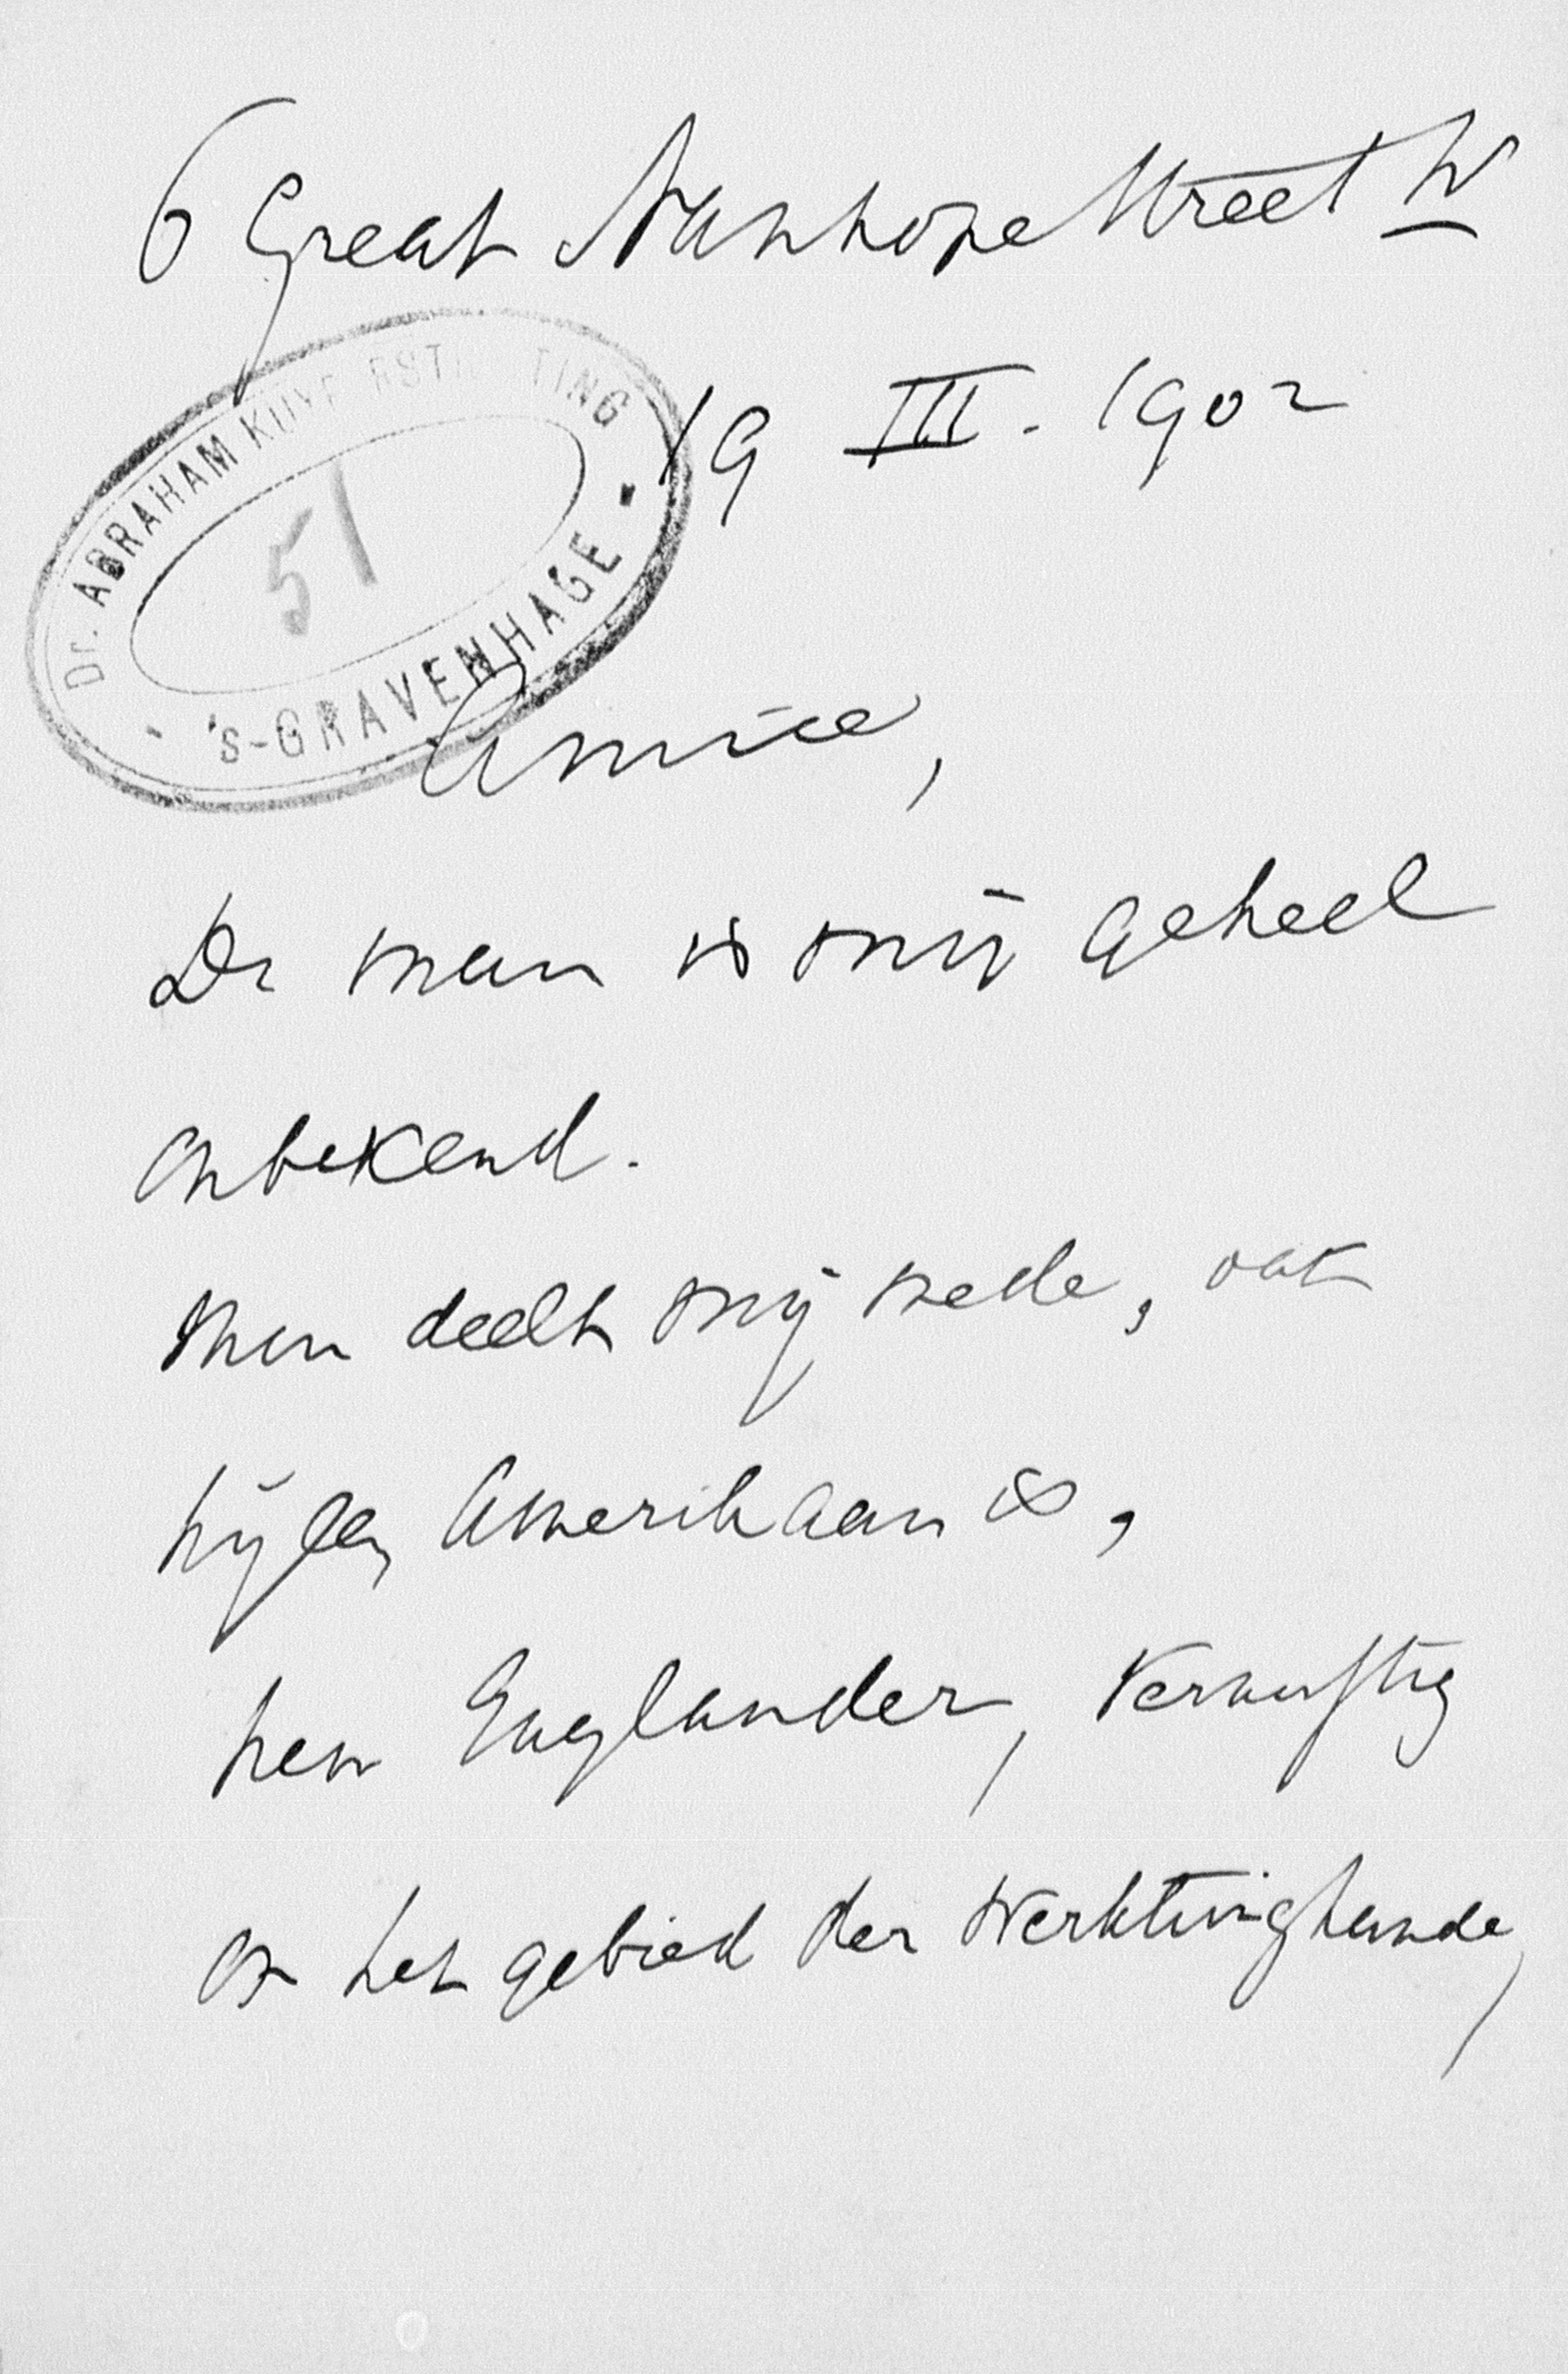 6 Great Stanhope Street W
19 III. 1902
Dr. ABRAHAM KUYPERSTICHTING
51
's-GRAVENHAGE
Amice,
De man is mij geheel
onbekend.
Men deelt mij mede, dat
hij een Amerikaan is,
geen Englander, vernuftig
op het gebied der Werktuigkunde,